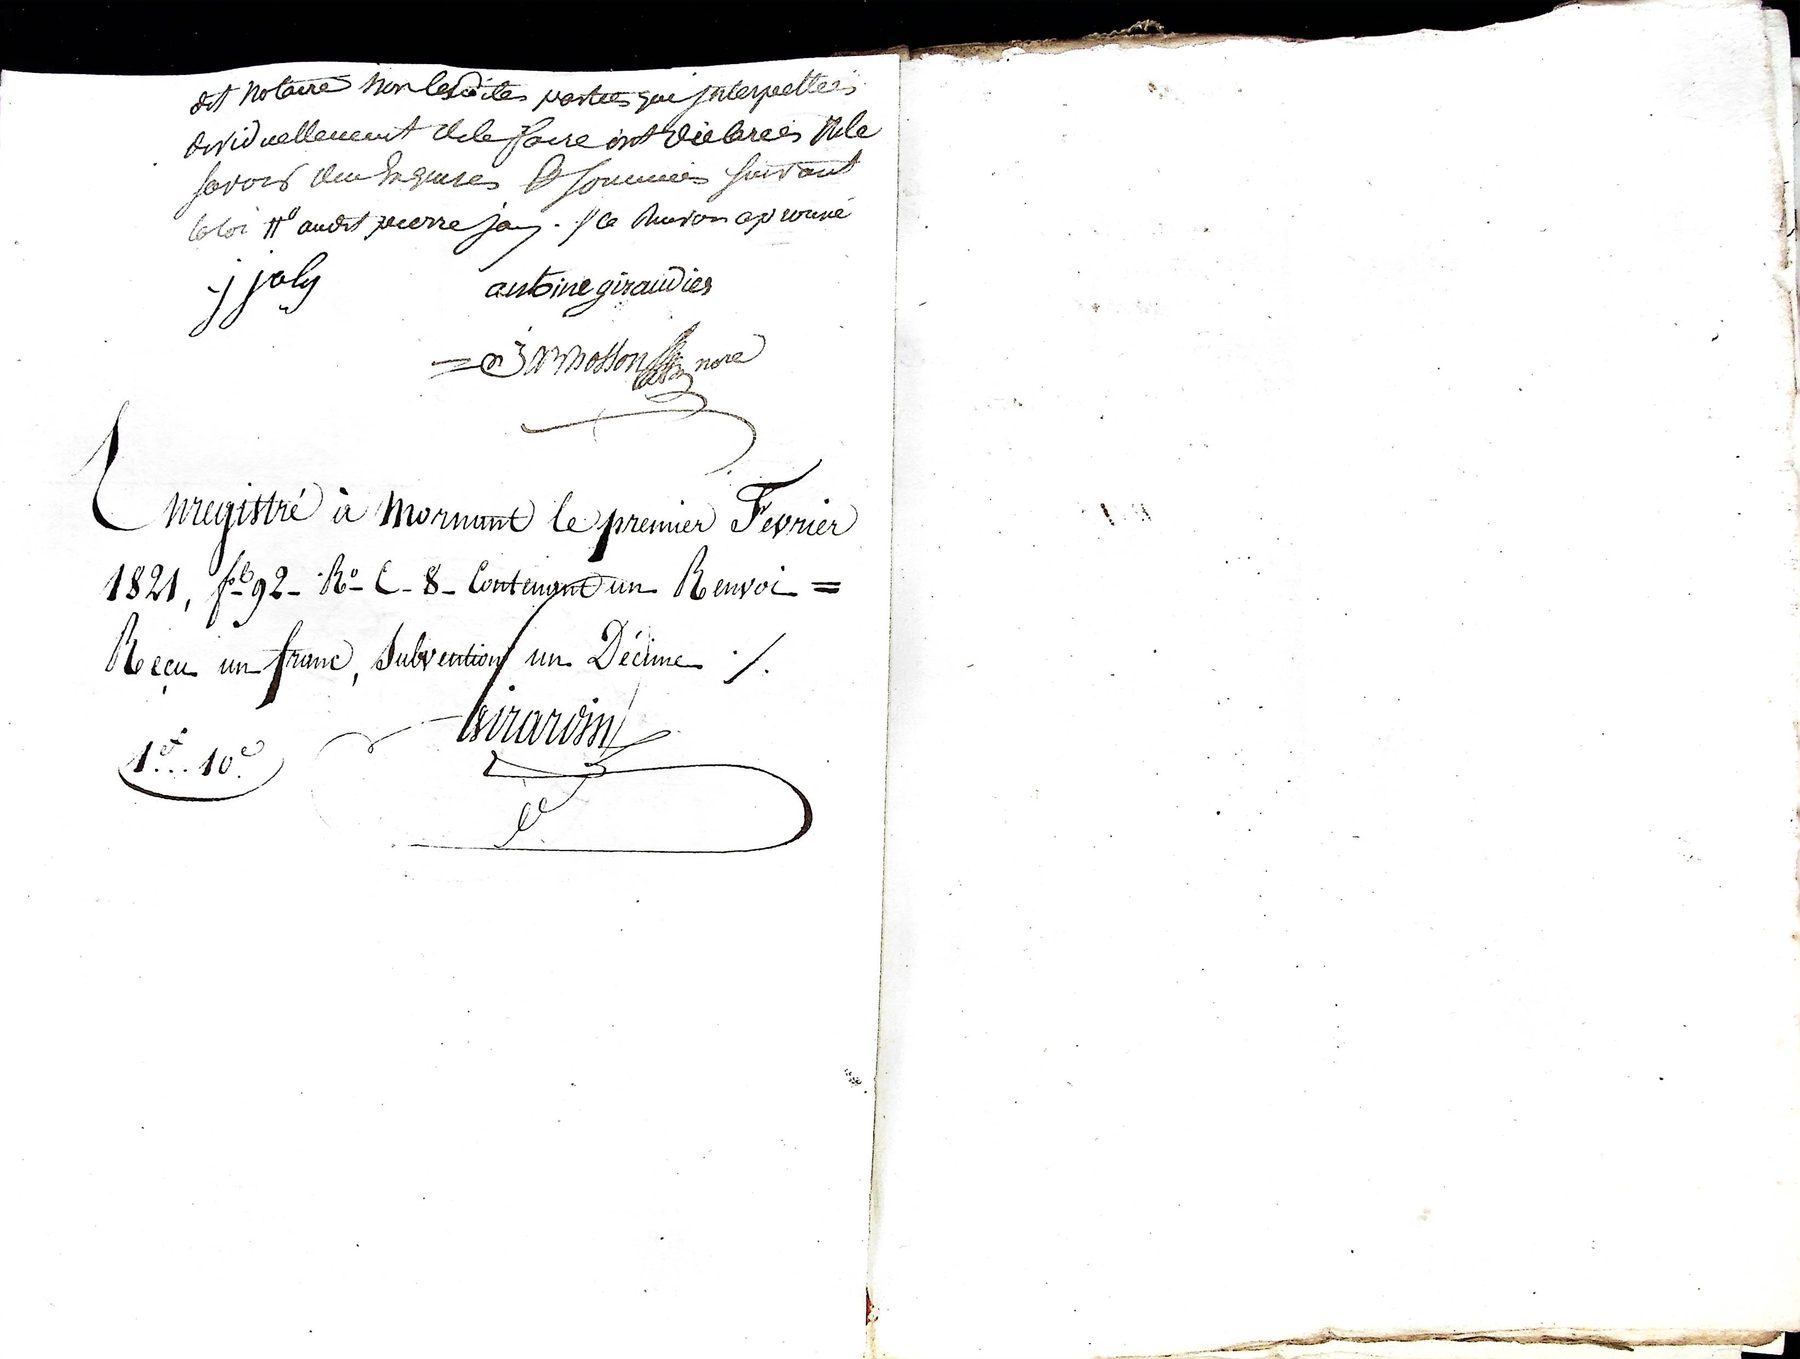 dit notaire non lesdites parties qui interpellées
dividuellement de le faire ont déclarées ne le
savoir deu enquises & sommées suivant
la loi # audit pierre jay . / ce renvoi aprouvé
j joly antoine giraudier
nore
Enregistré à Mornant le premier Fevrier
1821, fo 92 - Ro C - 8 - Contenant un Renvoi =
Reçu un franc, Subvention un Décime ./.
Girardin
1f... 10c